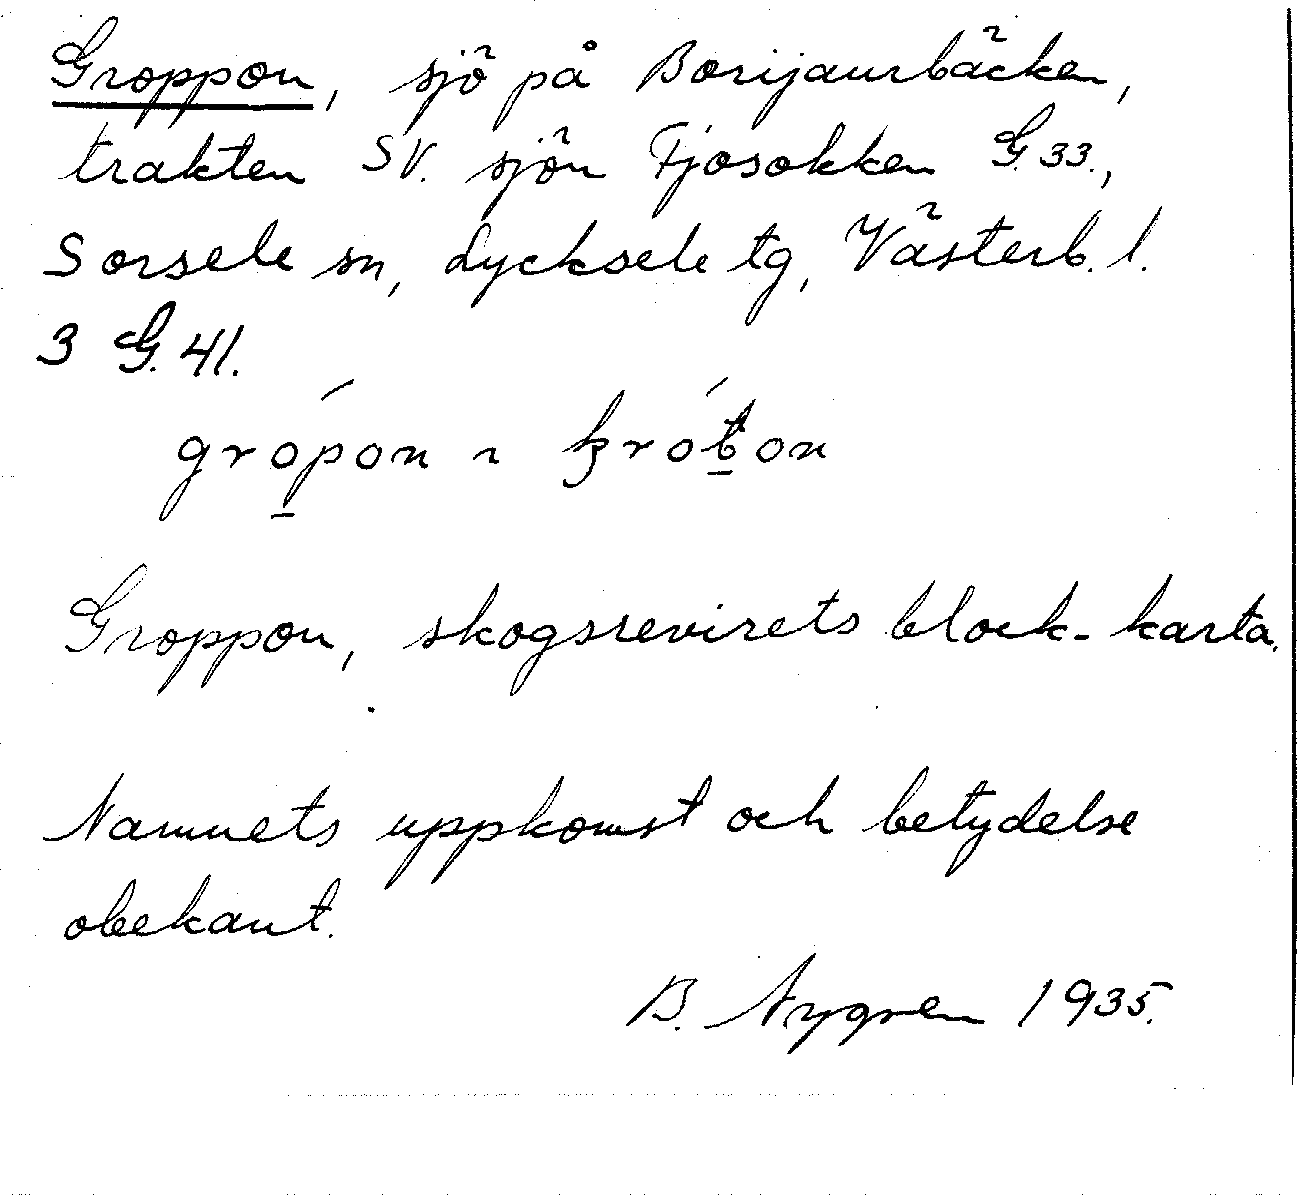 Groppon, sjö på Borijaurbäcken,
trakten SV. sjön Fjosokken G. 33.,
Sorsele sn, Lycksele tg, Västerb. l.
3 G. 41.
grópon ~
Groppon, skogsrevirets block-karta.
Namnets uppkomst och betydelse
obekant.
B. Nygren 1935.